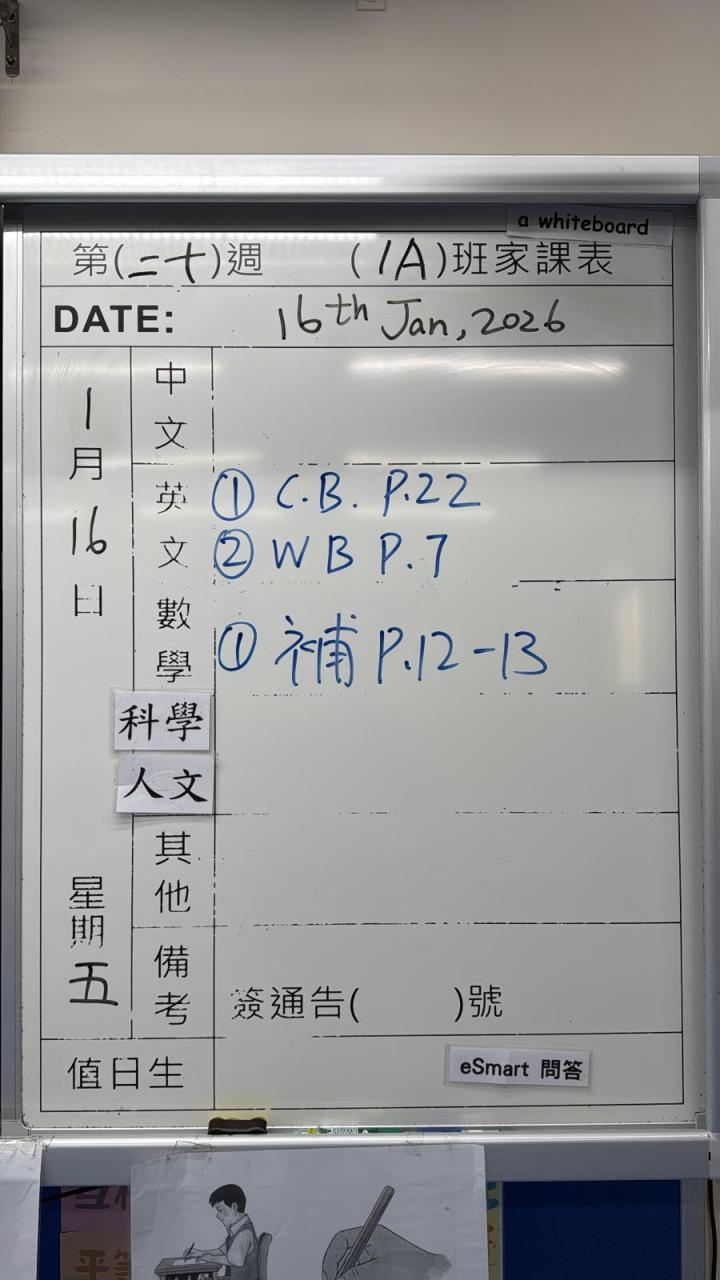 a whiteboard
第(二十)週 (1A)班家課表
DATE: 16th Jan, 2026
1月16日
星期五
中文
英文
① C.B. P.22
② WB P.7
數學
① 補 P.12-13
科學
人文
其他
備考
簽通告( )號
值日生
eSmart 問答